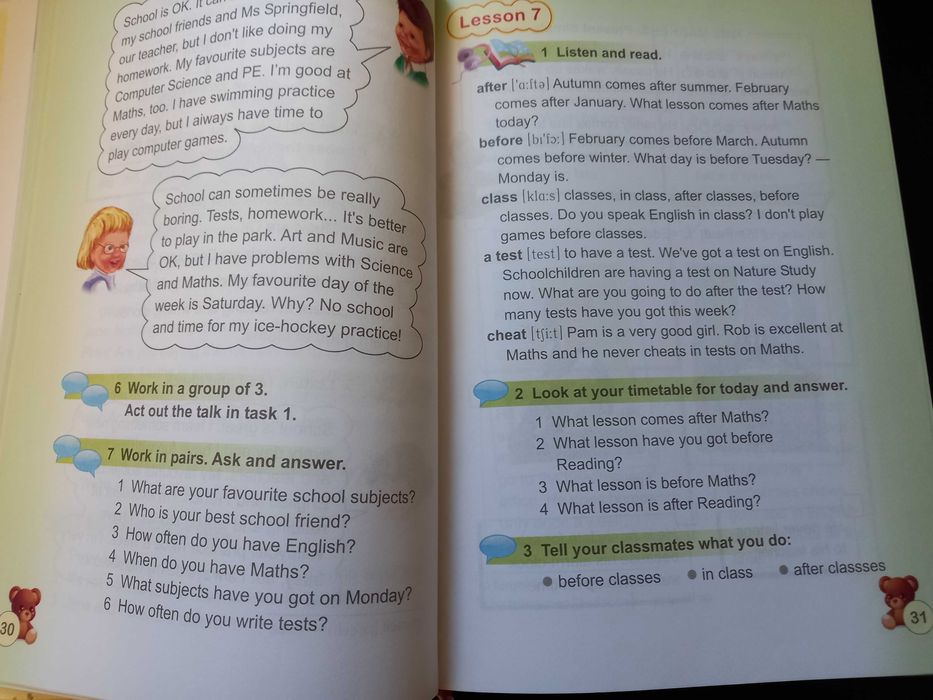 School is OK. It can
my school friends and Ms Springfield,
our teacher, but I don't like doing my
homework. My favourite subjects are
Computer Science and PE. I'm good at
Maths, too. I have swimming practice
every day, but I aiways have time to
play computer games.
School can sometimes be really
boring. Tests, homework... It's better
to play in the park. Art and Music are
OK, but I have problems with Science
and Maths. My favourite day of the
week is Saturday. Why? No school
and time for my ice-hockey practice!
6 Work in a group of 3.
Act out the talk in task 1.
7 Work in pairs. Ask and answer.
1 What are your favourite school subjects?
2 Who is your best school friend?
3 How often do you have English?
4 When do you have Maths?
5 What subjects have you got on Monday?
6 How often do you write tests?
30
Lesson 7
1 Listen and read.
after ['ɑ:ftə] Autumn comes after summer. February
comes after January. What lesson comes after Maths
today?
before [bɪ'fɔ:] February comes before March. Autumn
comes before winter. What day is before Tuesday? —
Monday is.
class [klɑ:s] classes, in class, after classes, before
classes. Do you speak English in class? I don't play
games before classes.
a test [test] to have a test. We've got a test on English.
Schoolchildren are having a test on Nature Study
now. What are you going to do after the test? How
many tests have you got this week?
cheat [tʃi:t] Pam is a very good girl. Rob is excellent at
Maths and he never cheats in tests on Maths.
2 Look at your timetable for today and answer.
1 What lesson comes after Maths?
2 What lesson have you got before
Reading?
3 What lesson is before Maths?
4 What lesson is after Reading?
3 Tell your classmates what you do:
● before classes ● in class ● after classses
31